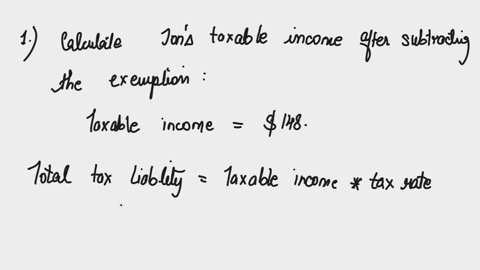 1.) Calculate Jon's taxable income after subtracting
the exemption :
Taxable income = $148.
Total tax liablity = Taxable income * tax rate